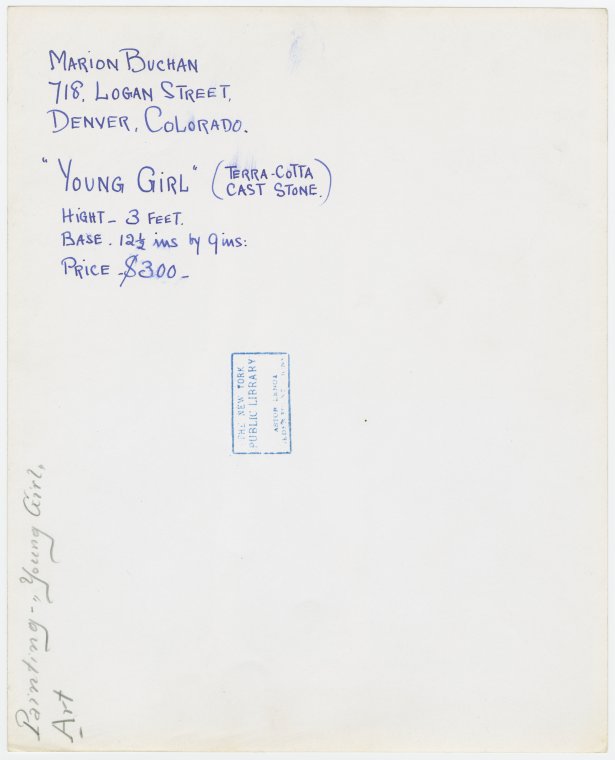 MARION BUCHAN
718, LOGAN STREET,
DENVER, COLORADO.
"YOUNG GIRL" (TERRA-COTTA
CAST STONE.)
HIGHT - 3 FEET.
BASE. 12½ ins by 9 ins:
PRICE - $300 -
THE NEW YORK
PUBLIC LIBRARY
ASTOR LENOX
Painting - "Young Girl,
Art